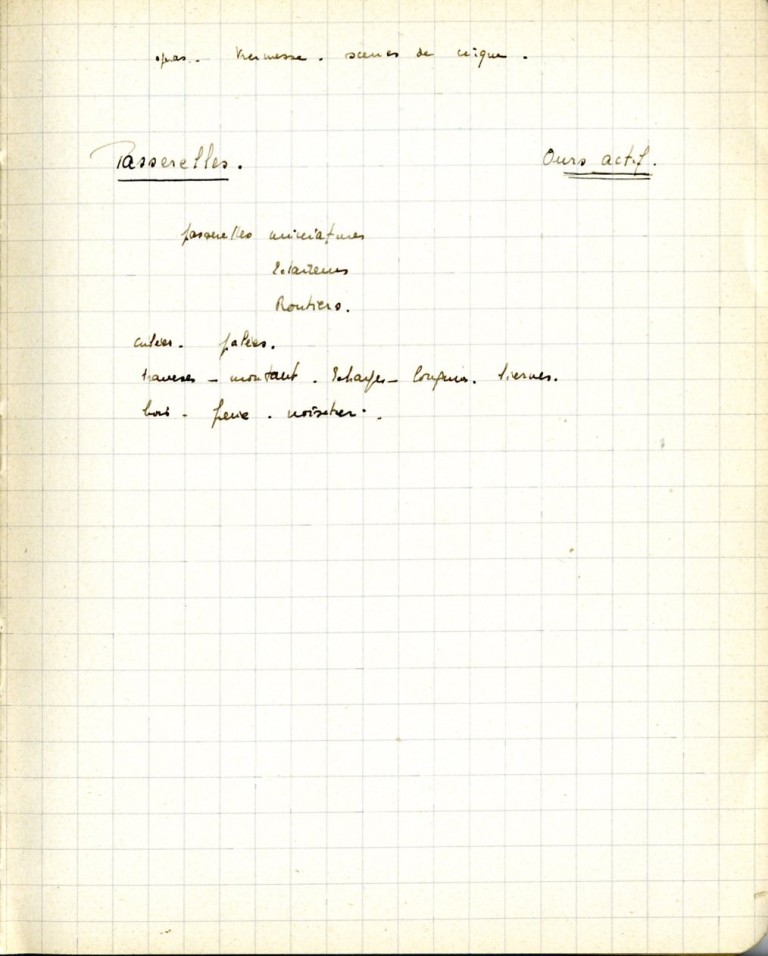 opas. Kermesse. scenes de cirque.
Passerelles. Ours actif.
passerelles miniatures
Eclaireurs
Routiers.
culées. palées.
traverses - montant. Echarpes - longrines. liernes.
bois - perie. noisetier.